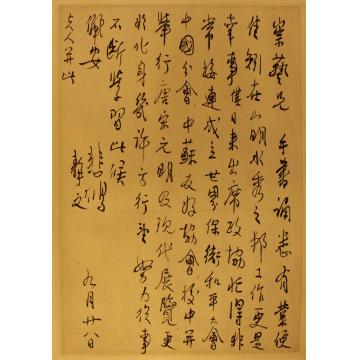 崇藝兄 手書誦悉 有業使
佳 在山明水秀之邦工作更是
幸事 僕日來出席政協忙得非
常 接連成立世界保衛和平大會
中國分會 中蘇友好協會 中并
舉行唐宋元明及現代展覽 更
化身幾許方行 望努力從事
不斷學習 此候
儷安 悲鴻 九月廿八日
夫人并此 靜文